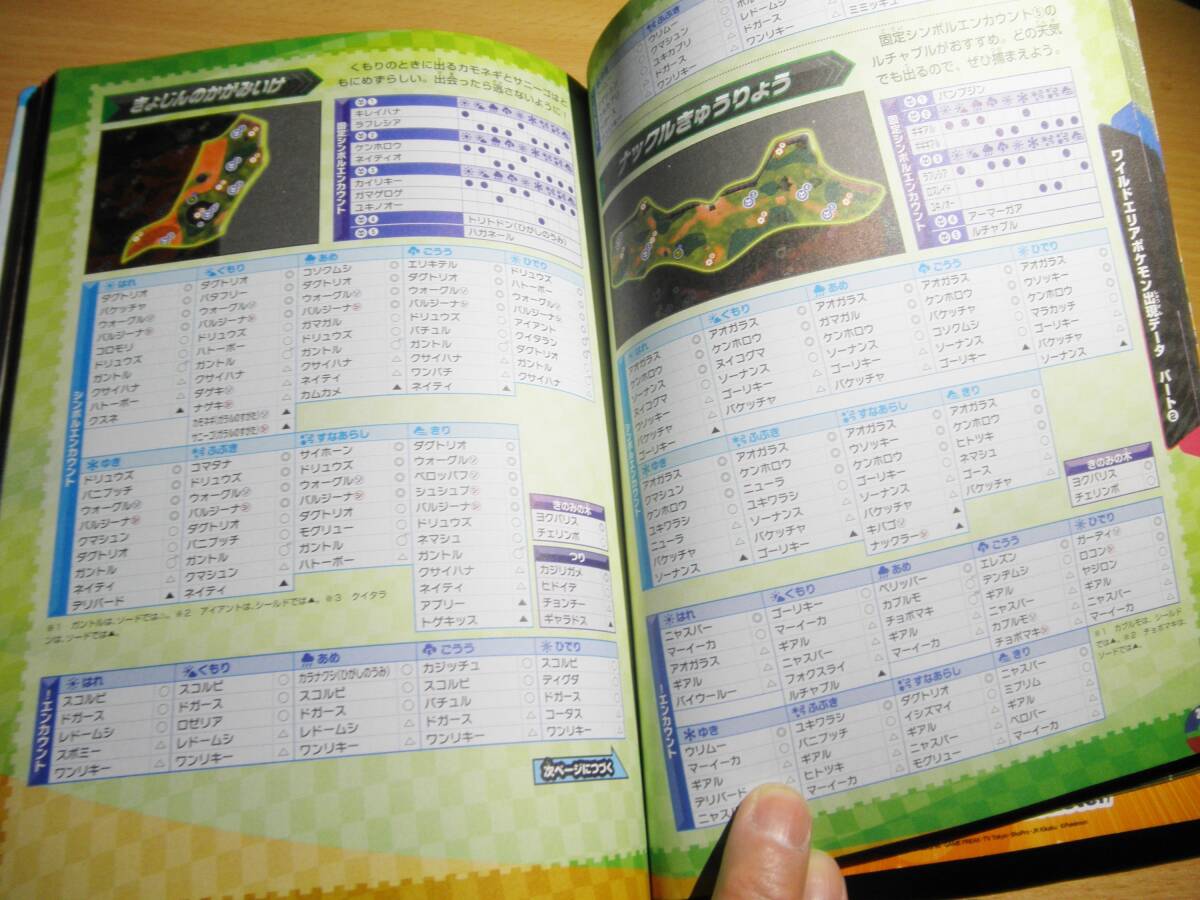 きょじんのかがみいけ
くもりのときに出るカモネギとサニーゴはと
もにめずらしい。出会ったら逃さないように!
固定シンボルエンカウント
1
キレイハナ
ラフレシア
2
ケンホロウ
ネイティオ
3
カイリキー
ガマゲロゲ
ユキノオー
4 トリトドン(ひがしのうみ)
5 ハガネール
シンボルエンカウント
はれ
ダグトリオ
バケッチャ
ウォーグル
バルジーナ
コロモリ
ドリュウズ
ガントル
クサイハナ
ハトーボー
クスネ
くもり
ダグトリオ
バタフリー
ウォーグル
バルジーナ
ドリュウズ
ハトーボー
ガントル
クサイハナ
ダゲキ
ナゲキ
カモネギ(ガラルのすがた)
サニーゴ(ガラルのすがた)
あめ
コソクムシ
ダグトリオ
ウォーグル
バルジーナ
ガマガル
ドリュウズ
ガントル
クサイハナ
ネイティ
カムカメ
ごうう
エリキテル
ダグトリオ
ウォーグル
バルジーナ
ドリュウズ
バチュル
ガントル
クサイハナ
ワンパチ
ネイティ
ひでり
ドリュウズ
ハトーボー
ウォーグル
バルジーナ
アイアント
クイタラン
ダグトリオ
ガントル
クサイハナ
ゆき
ドリュウズ
バニプッチ
ウォーグル
バルジーナ
クマシュン
ダグトリオ
ガントル
ネイティ
デリバード
ふぶき
コマタナ
ドリュウズ
ウォーグル
バルジーナ
ダグトリオ
バニプッチ
ガントル
クマシュン
ネイティ
すなあらし
サイホーン
ドリュウズ
ウォーグル
バルジーナ
ダグトリオ
モグリュー
ガントル
ハトーボー
きり
ダグトリオ
ウォーグル
ペロッパフ
シュシュプ
バルジーナ
ドリュウズ
ネマシュ
ガントル
クサイハナ
ネイティ
アブリー
トゲキッス
きのみの木
ヨクバリス
チェリンボ
つり
カジリガメ
ヒドイデ
チョンチー
ギャラドス
※1 ガントルは、ソードでは△。※2 アイアントは、シールドでは▲。※3 クイタラ
ンは、ソードでは▲。
!エンカウント
はれ
スコルピ
ドガース
レドームシ
スボミー
ワンリキー
くもり
スコルピ
ドガース
ロゼリア
レドームシ
ワンリキー
あめ
カラナクシ(ひがしのうみ)
スコルピ
ドガース
レドームシ
ワンリキー
ごうう
カジッチュ
スコルピ
バチュル
ドガース
ワンリキー
ひでり
スコルピ
ディグダ
ドガース
コータス
ワンリキー
次ページにつづく
ふぶき
ウリムー
クマシュン
ユキカブリ
ドガース
ワンリキー
レドームシ
ドガース
ワンリキー
ミミッキュ
ナックルきゅうりょう
固定シンボルエンカウント⑤の
ルチャブルがおすすめ。どの天気
でも出るので、ぜひ捕まえよう。
固定シンボルエンカウント
1 パンプジン
2
ギギアル
ギギギアル
3
ラフレシア
ロズレイド
ユキノオー
4 アーマーガア
5 ルチャブル
はれ
アオガラス
ケンホロウ
ソーナンス
ヌイコグマ
ウソッキー
バケッチャ
ゴーリキー
くもり
アオガラス
ケンホロウ
ヌイコグマ
ソーナンス
ゴーリキー
バケッチャ
あめ
アオガラス
ガマガル
ケンホロウ
ソーナンス
ゴーリキー
バケッチャ
ごうう
アオガラス
ケンホロウ
ケンホロウ
コソクムシ
ソーナンス
ゴーリキー
ひでり
アオガラス
ウソッキー
ケンホロウ
マラカッチ
ゴーリキー
バケッチャ
ソーナンス
ゆき
アオガラス
クマシュン
ケンホロウ
ユキワラシ
ニューラ
バケッチャ
ソーナンス
ふぶき
アオガラス
ケンホロウ
ニューラ
ユキワラシ
ソーナンス
バケッチャ
ゴーリキー
すなあらし
アオガラス
ウソッキー
ケンホロウ
ゴーリキー
ソーナンス
バケッチャ
キバゴ
ナックラー
きり
アオガラス
ケンホロウ
ヒトツキ
ネマシュ
ゴース
バケッチャ
きのみの木
ヨクバリス
チェリンボ
!エンカウント
はれ
ニャスパー
マーイーカ
アオガラス
ギアル
バイウールー
くもり
ゴーリキー
マーイーカ
ギアル
ニャスパー
フォクスライ
ルチャブル
あめ
ペリッパー
カブルモ
チョボマキ
ギアル
ニャスパー
マーイーカ
ごうう
エレズン
デンヂムシ
ギアル
ニャスパー
カブルモ
チョボマキ
ひでり
ガーディ
ロコン
ヤジロン
ギアル
ニャスパー
マーイーカ
※1 カブルモは、シールド
では▲。※2 チョボマキは、
ソードでは▲。
ゆき
ウリムー
マーイーカ
ギアル
デリバード
ふぶき
ユキワラシ
バニプッチ
ギアル
ヒトツキ
マーイーカ
すなあらし
ダグトリオ
イシズマイ
ギアル
ニャスパー
モグリュー
きり
ニャスパー
ミブリム
ギアル
ベロバー
マーイーカ
ワイルドエリアポケモン出現データ パート②